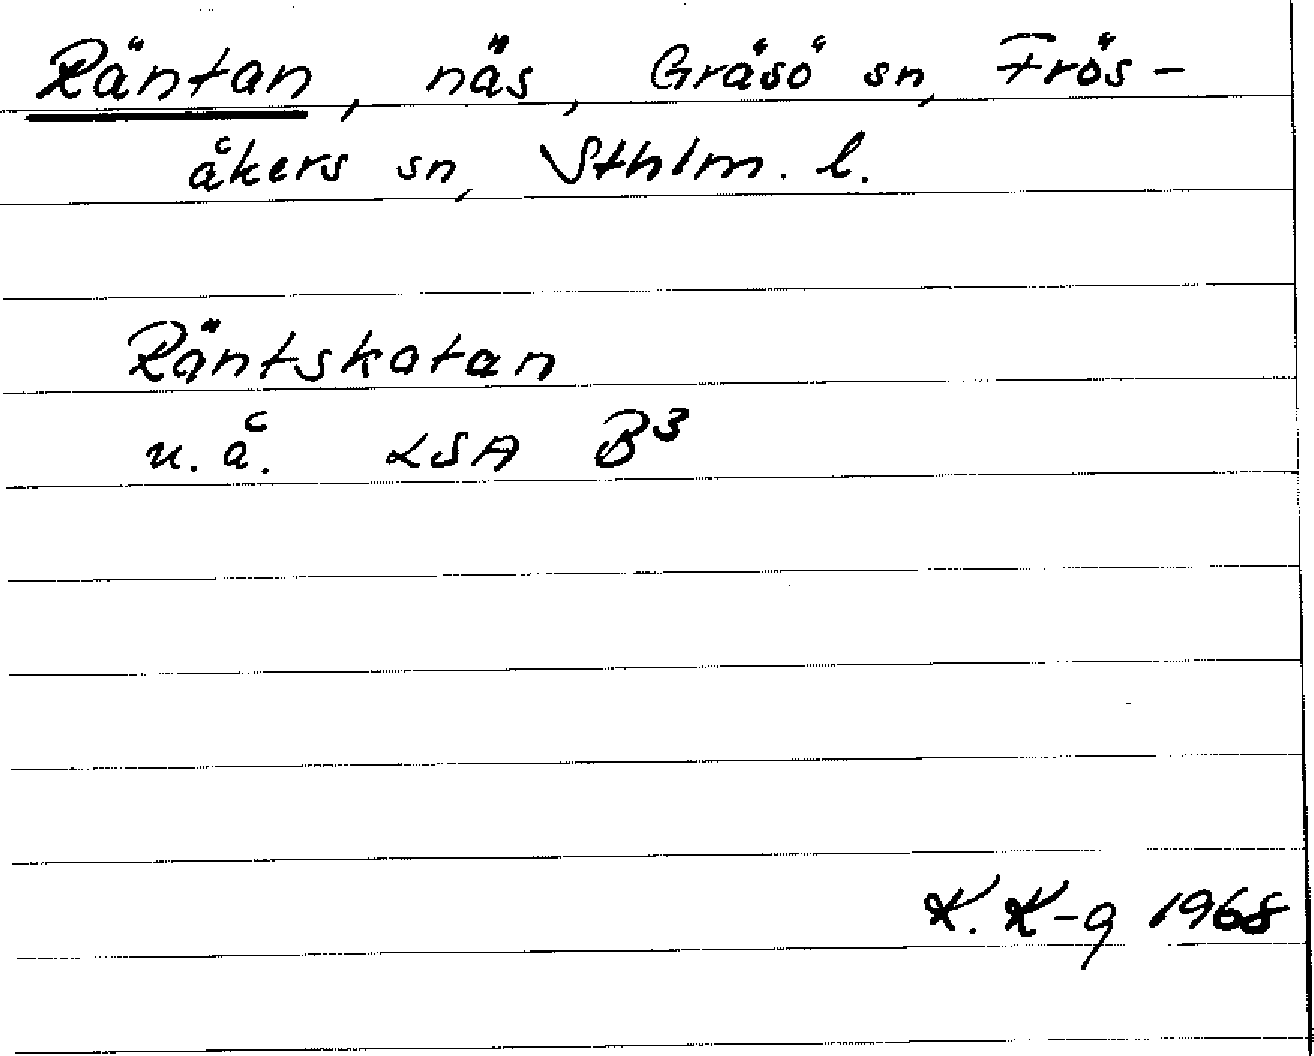 Räntan, näs, Gräsö sn, Frös-
åkers sn, Sthlm. l.
Räntskatan
u. å. LSA B3
K. K-g 1968